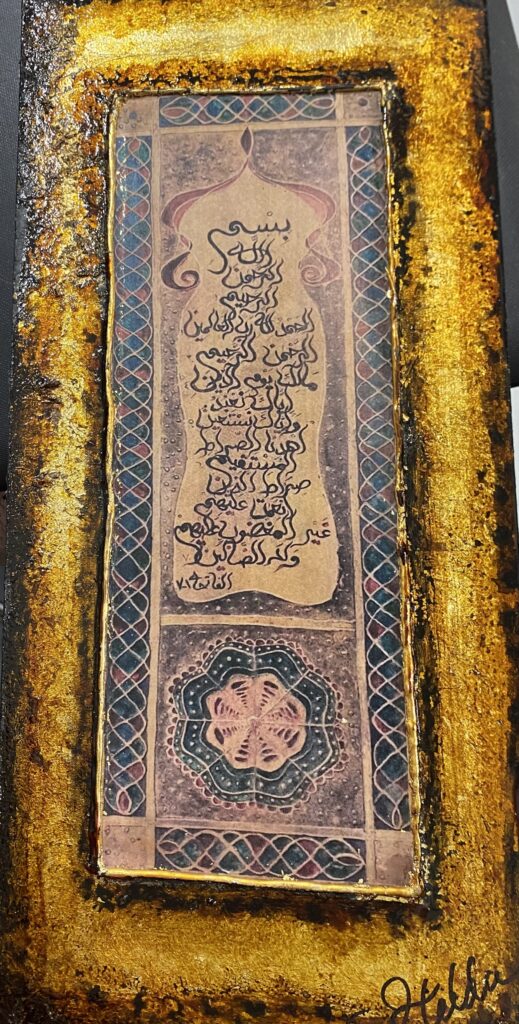 بسم
الله
الرحمن
الرحيم
الحمد لله رب العالمين
الرحمن الرحيم
مالك يوم الدين
إياك نعبد
وإياك نستعين
اهدنا الصراط
المستقيم
صراط الذين
أنعمت عليهم
غير المغضوب عليهم
ولا الضالين
الفاتحة